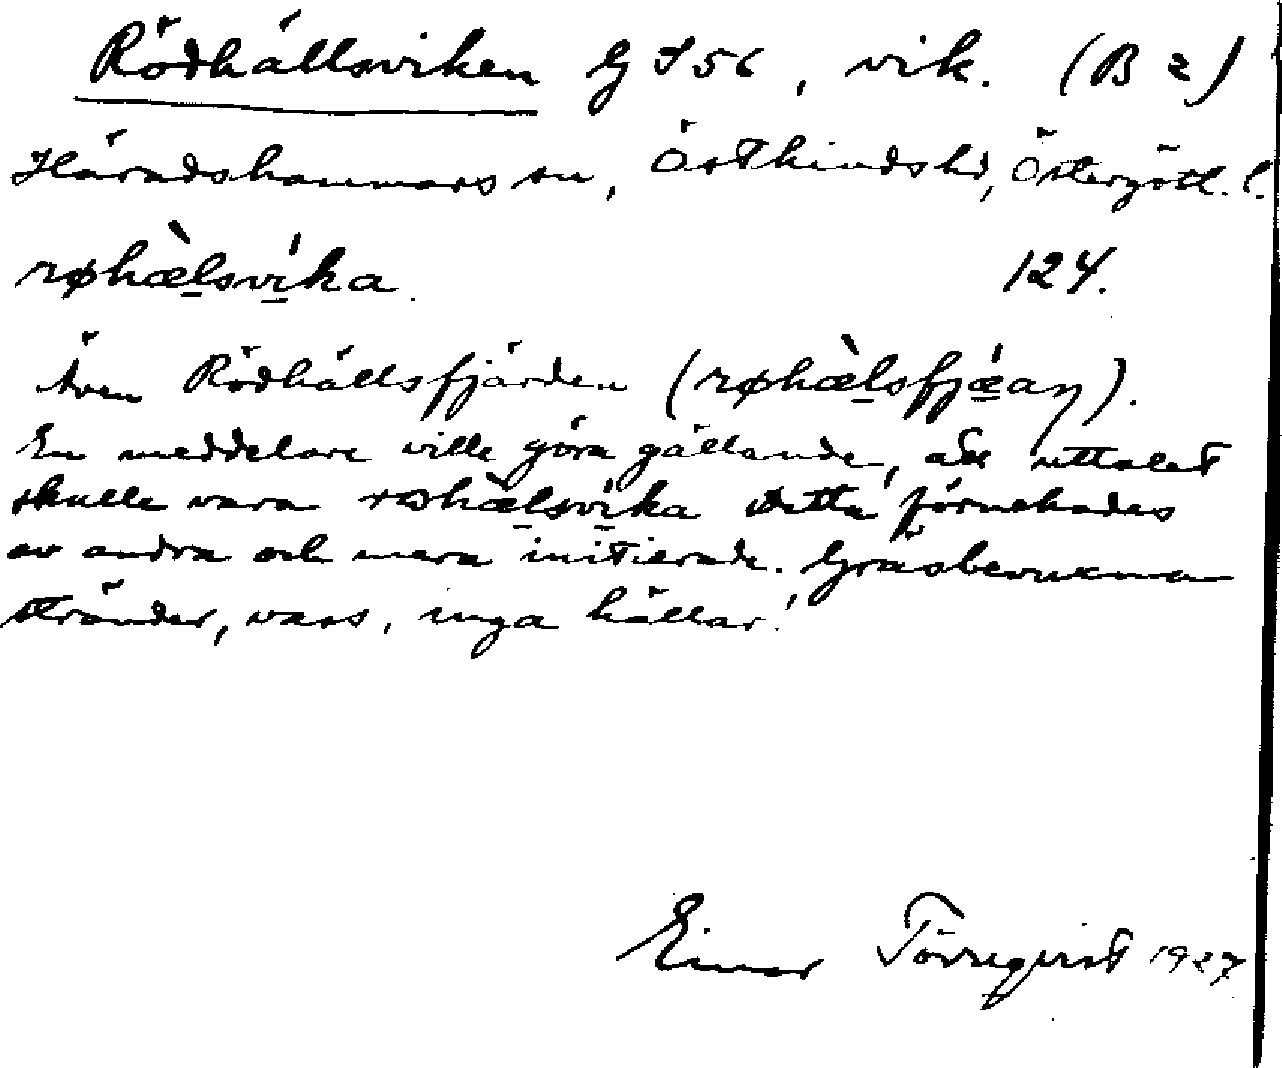 Rödhällsviken G S 56, vik. (B 2)
Häradshammars sn, Östkinds hd, Östergötl. l.
røhæ̀lsvíka 124.
Även Rödhällsfjärden (røhæ̀lsfjǽaṇ).
En meddelare ville göra gällande, att uttalet
skulle vara røhæ̀lsvíka Detta förnekades
av andra och mera initierade. Gräsbevuxna
stränder, vass, inga hällar!
Einar Törnqvist 1927